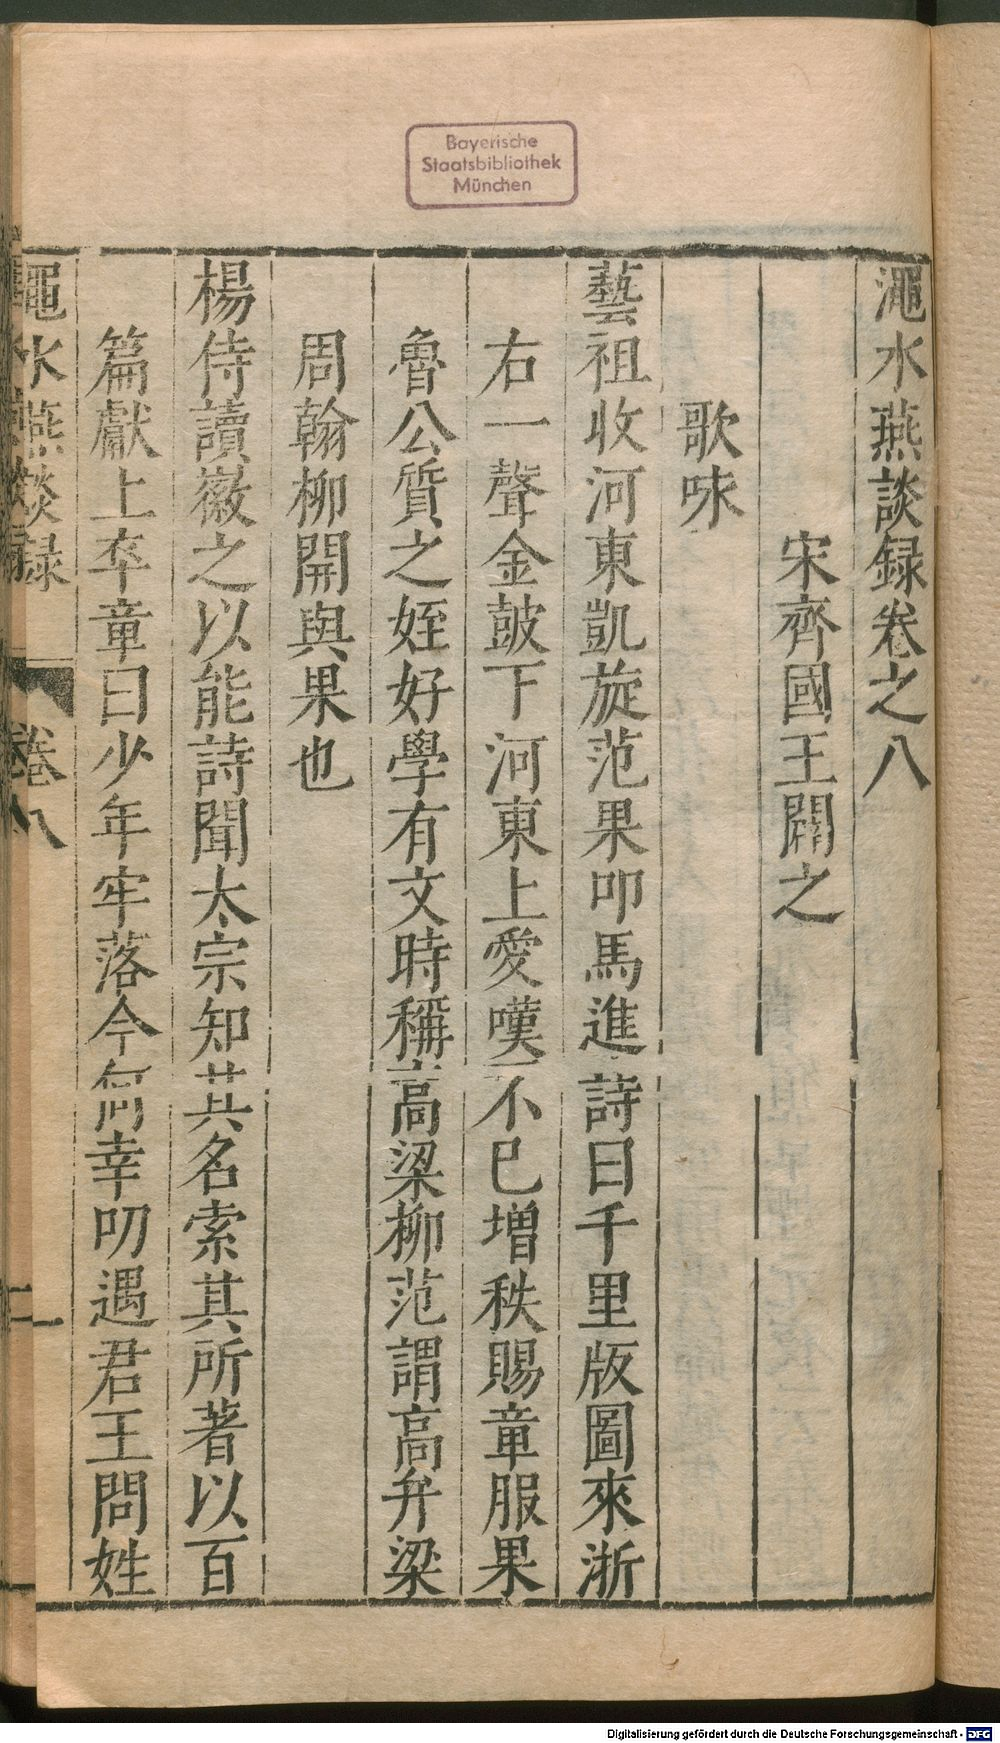 Bayerische
Staatsbibliothek
München
澠水燕談録卷之八
宋齊國王闢之
歌咏
藝祖收河東凱旋范果叩馬進詩曰千里版圖來浙
右一聲金鼓下河東上愛嘆不已增秩賜章服果
魯公質之姪好學有文時稱高梁柳范謂高弁梁
周翰柳開與果也
楊侍讀徽之以能詩聞太宗知其名索其所著以百
篇獻上卒章曰少年牢落今何幸叨遇君王問姓
澠水燕談録
卷八
Digitalisierung gefördert durch die Deutsche Forschungsgemeinschaft - DFG